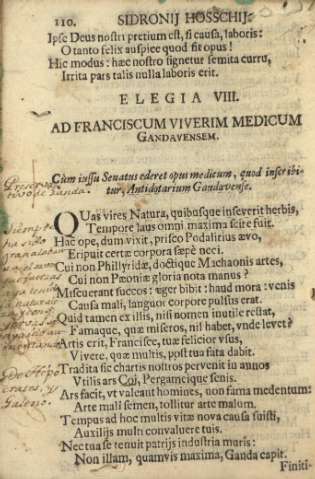 110. SIDRONIJ HOSSCHIJ.
Ipse Deus nostri pretium est, si causa, laboris:
O tanto felix auspice quod fit opus!
Hic modus: hæc nostro signetur semita curru,
Irrita pars talis nulla laboris erit.
ELEGIA VIII.
AD FRANCISCUM VIVERIM MEDICUM
GANDAVENSEM.
Cùm jussu Senatus ederet opus medicum, quod inscribi-
tur, Antidotarium Gandavense.
QUas vires Natura, quibusque inseverit herbis,
Tempore laus omni maxima scire fuit.
Hac ope, dum vixit, prisco Podalirius ævo,
Eripuit certæ corpora sæpè neci.
Cui non Phillyridæ, doctique Machaonis artes,
Cui non Pæoniæ gloria nota manus?
Miscuerant succos: æger bibit: haud mora: venis
Causa mali, languor corpore pulsus erat.
Quid tamen ex illis, nisi nomen inutile restat,
Famaque, quæ miseros, nil habet, unde levet?
Artis erit, Francisce, tuæ felicior usus,
Vivere, quæ multis, post tua fata dabit.
Tradita sic chartis nostros pervenit in annos
Utilis ars Coi, Pergameique senis.
Ars facit, ut valeant homines, non fama medentum:
Arte mali semen, tollitur arte malum.
Tempus ad hoc multis vitæ nova causa fuisti,
Auxiliis multi convaluere tuis.
Nec tua se tenuit patriis industria muris:
Non illam, quamvis maxima, Ganda capit.
Finiti-